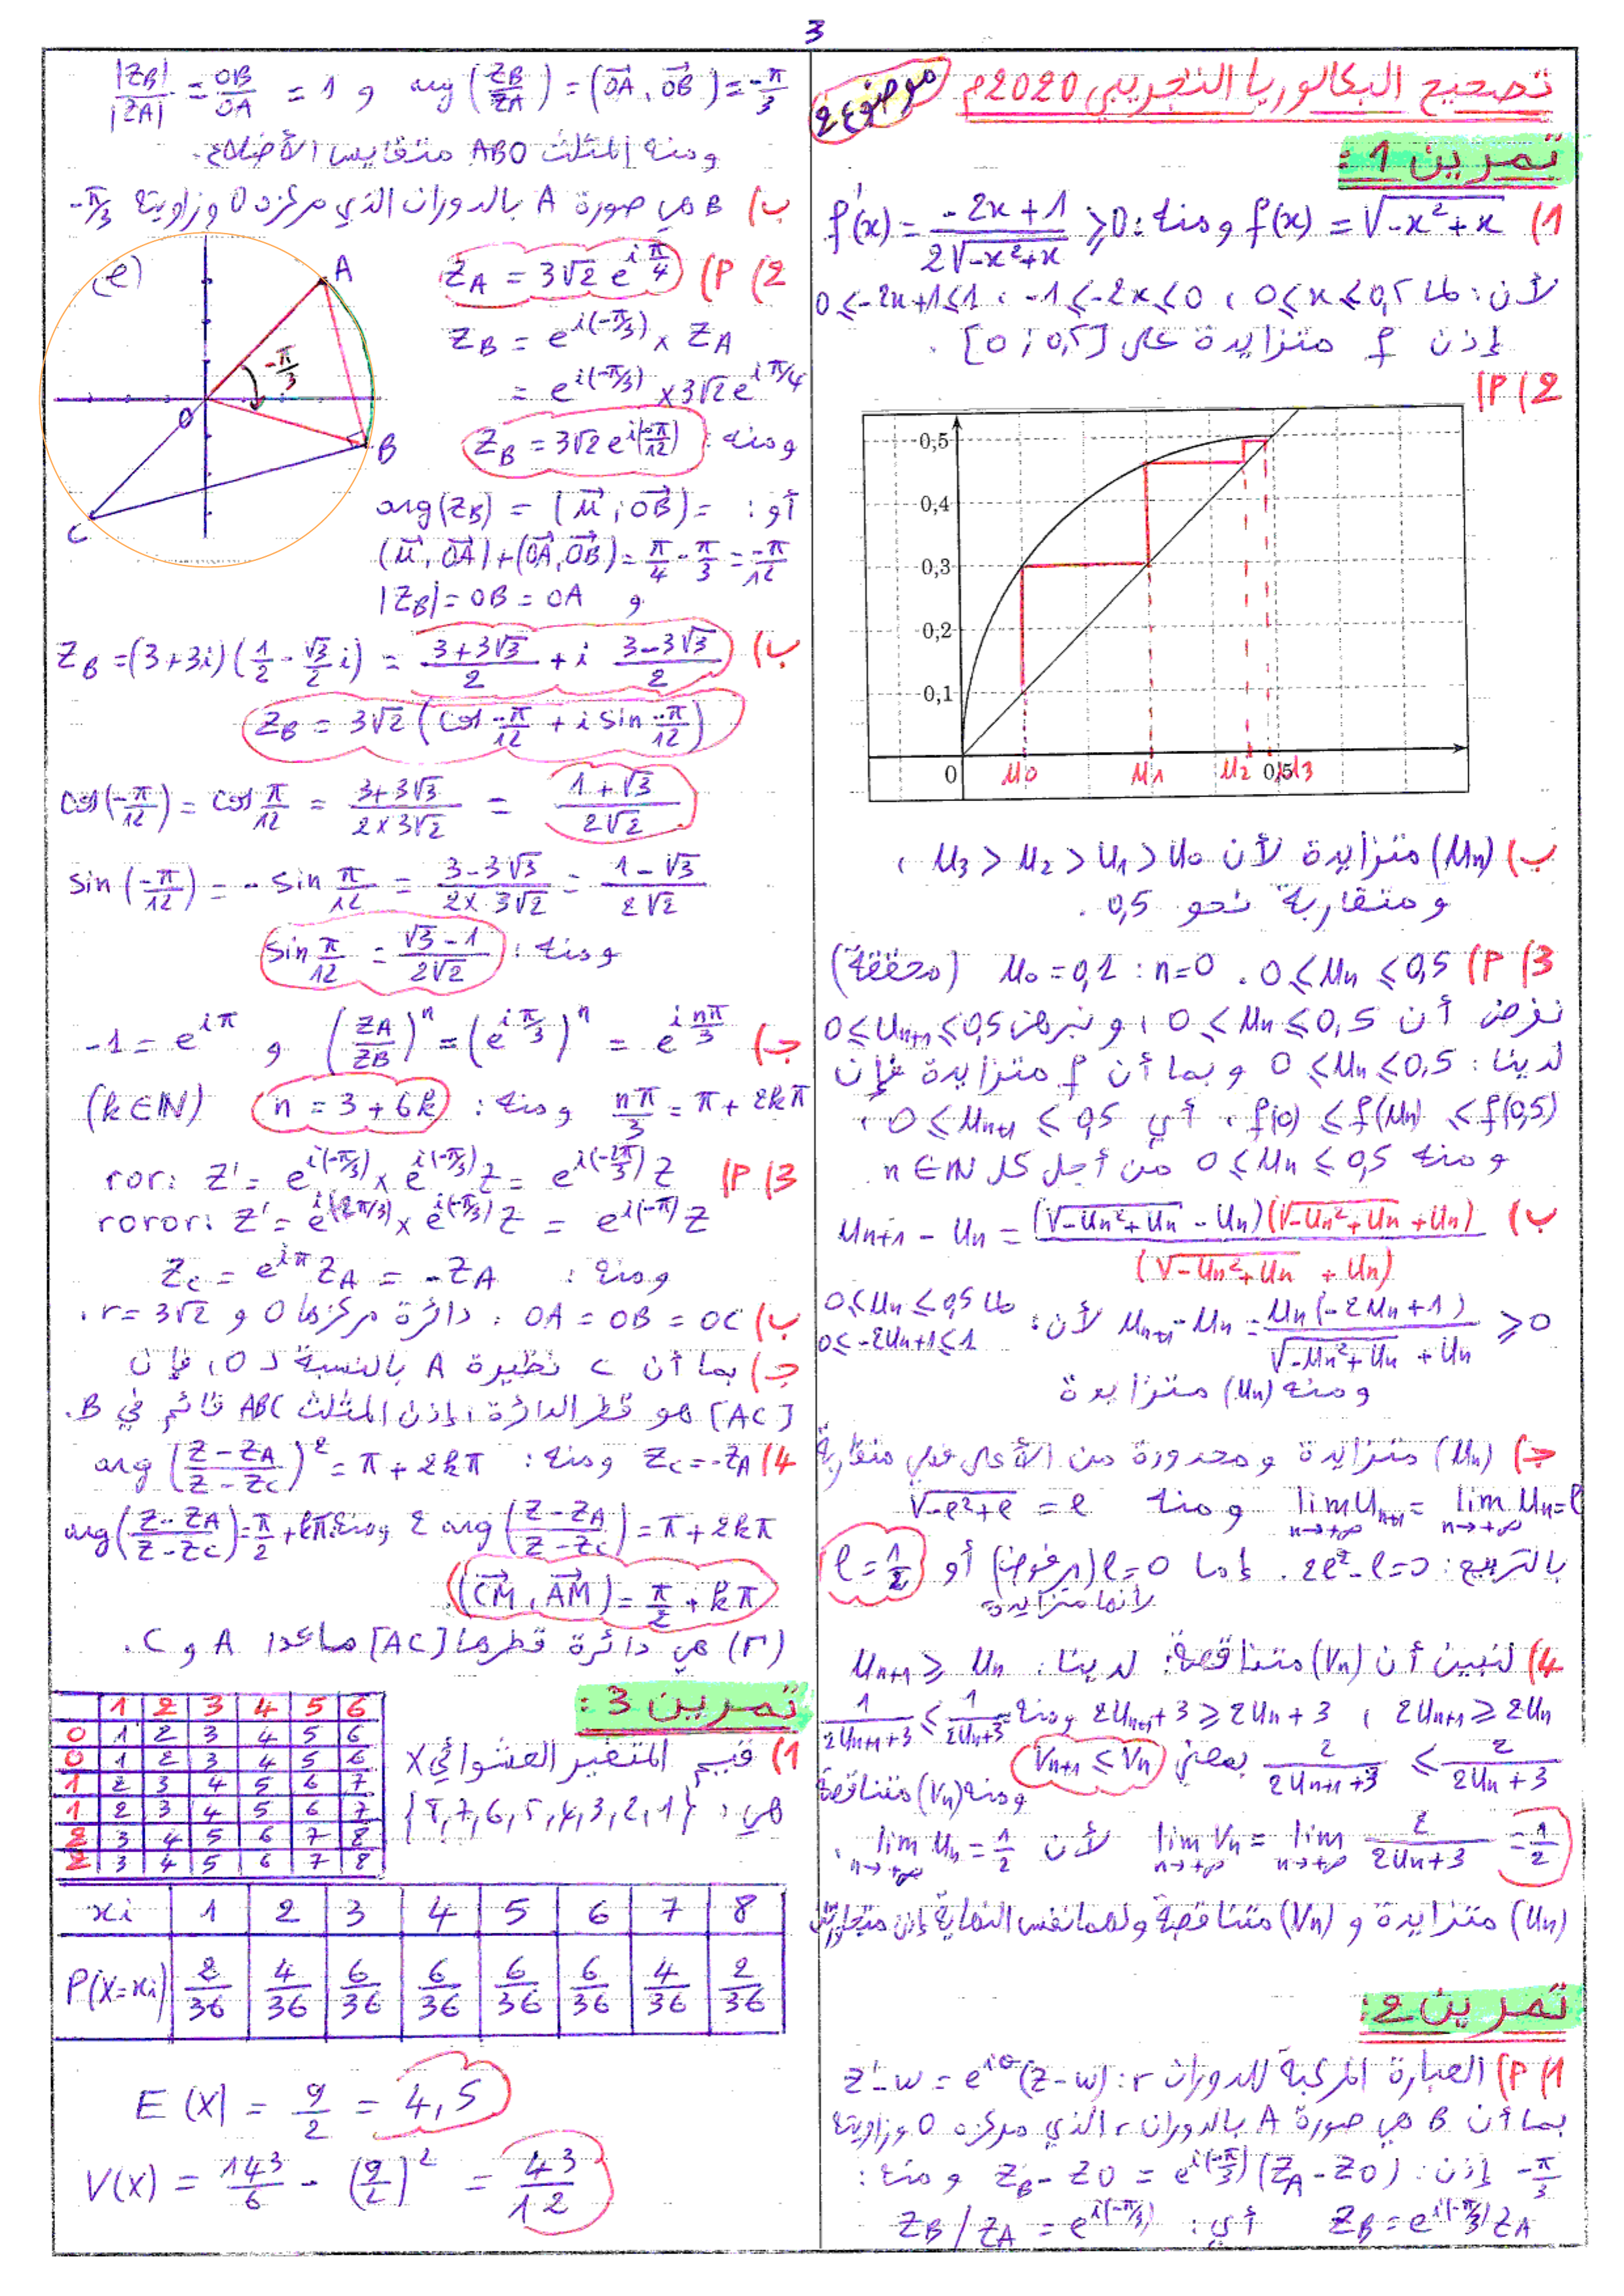 3
تصحيح البكالوريا التجريبي 2020م
موضوع 2
تمرين 1 :
1) f(x) = √(-x²+x) ومنه: f'(x) = (-2x+1)/(2√(-x²+x)) ≥ 0
لأن: لما 0 ≤ x ≤ 0,5 ، -1 ≤ -2x ≤ 0 ، 0 ≤ -2x+1 ≤ 1
إذن f متزايدة على [0 ; 0,5] .
2) أ)
0,5
0,4
0,3
0,2
0,1
0 u0 u1 u2 0,5 u3
ب) (un) متزايدة لأن u3 > u2 > u1 > u0 ،
ومتقاربة نحو 0,5 .
3) أ) 0 ≤ un ≤ 0,5 . n=0 : u0 = 0,1 (محققة)
نفرض أن 0 ≤ un ≤ 0,5 ، ونبرهن 0 ≤ un+1 ≤ 0,5
لدينا : 0 ≤ un ≤ 0,5 وبما أن f متزايدة فإن
f(0) ≤ f(un) ≤ f(0,5) ، أي 0 ≤ un+1 ≤ 0,5 ،
ومنه 0 ≤ un ≤ 0,5 من أجل كل n ∈ ℕ
ب) un+1 - un = (√(-un²+un) - un)(√(-un²+un) + un) / (√(-un²+un) + un)
un+1 - un = un(-2un+1) / (√(-un²+un) + un) ≥ 0 لأن: لما 0 ≤ un ≤ 0,5
0 ≤ -2un+1 ≤ 1
ومنه (un) متزايدة
ج) (un) متزايدة ومحدودة من الأعلى فهي متقاربة
lim n→+∞ un+1 = lim n→+∞ un = ℓ ومنه √(-ℓ²+ℓ) = ℓ
بالتربيع: 2ℓ² - ℓ = 0 . إما ℓ=0 (مرفوض) أو ℓ = 1/2
لأنها متزايدة
4) لنبين أن (vn) متناقصة: لدينا: un+1 ≥ un
2un+1 ≥ 2un ، 2un+1 + 3 ≥ 2un + 3 ومنه 1/(2un+1+3) ≤ 1/(2un+3)
2/(2un+1+3) ≤ 2/(2un+3) بمعنى vn+1 ≤ vn
ومنه (vn) متناقصة
lim n→+∞ vn = lim n→+∞ 2/(2un+3) = 1/2 لأن lim n→+∞ un = 1/2 .
(un) متزايدة و (vn) متناقصة ولهما نفس النهاية إذن متجاورتان
تمرين 2 :
1) أ) العبارة المركبة للدوران r : z'-w = e^{iθ}(z-w)
بما أن B هي صورة A بالدوران r الذي مركزه O وزاويته
-π/3 إذن: zB - zO = e^{i(-π/3)}(zA - zO) ومنه :
zB = e^{i(-π/3)} zA أي : zB / zA = e^{i(-π/3)}
|zB|/|zA| = OB/OA = 1 و arg(zB/zA) = (OA⃗, OB⃗) = -π/3
ومنه المثلث ABO متقايس الأضلاع.
ب) B هي صورة A بالدوران الذي مركزه O وزاويته -π/3
(e)
A
-π/3
O
B
C
2) أ) zA = 3√2 e^{iπ/4}
zB = e^{i(-π/3)} × zA
= e^{i(-π/3)} × 3√2 e^{iπ/4}
ومنه : zB = 3√2 e^{i(-π/12)}
أو : arg(zB) = (u⃗ ; OB⃗) =
(u⃗, OA⃗)+(OA⃗, OB⃗) = π/4 - π/3 = -π/12
و |zB| = OB = OA
ب) zB = (3+3i)(1/2 - √3/2 i) = (3+3√3)/2 + i (3-3√3)/2
zB = 3√2 (cos -π/12 + i sin -π/12)
cos(-π/12) = cos π/12 = (3+3√3)/(2×3√2) = (1+√3)/(2√2)
sin(-π/12) = - sin π/12 = (3-3√3)/(2×3√2) = (1-√3)/(2√2)
ومنه : sin π/12 = (√3-1)/(2√2)
ج) (zA/zB)^n = (e^{iπ/3})^n = e^{i nπ/3} و -1 = e^{iπ}
nπ/3 = π + 2kπ ومنه : n = 3+6k (k∈ℕ)
3) أ) ror: z' = e^{i(-π/3)} × e^{i(-π/3)} z = e^{i(-2π/3)} z
roror: z' = e^{i(2π/3)} × e^{i(-π/3)} z = e^{i(-π)} z
ومنه : zC = e^{iπ} zA = -zA
ب) OA = OB = OC ، دائرة مركزها O و r = 3√2 .
ج) بما أن C نظيرة A بالنسبة لـ O ، فإن
[AC] هو قطر الدائرة ، إذن المثلث ABC قائم في B.
4) zC = -zA ومنه : arg((z-zA)/(z-zC))² = π + 2kπ
2 arg((z-zA)/(z-zC)) = π + 2kπ ومنه arg((z-zA)/(z-zC)) = π/2 + kπ
(CM⃗, AM⃗) = π/2 + kπ
(Γ) هي دائرة قطرها [AC] ماعدا A و C .
تمرين 3 :
1) قيم المتغير العشوائي X
هي : {8,7,6,5,4,3,2,1}
1 2 3 4 5 6
0 1 2 3 4 5 6
0 1 2 3 4 5 6
1 2 3 4 5 6 7
1 2 3 4 5 6 7
2 3 4 5 6 7 8
2 3 4 5 6 7 8
xi 1 2 3 4 5 6 7 8
P(X=xi) 2/36 4/36 6/36 6/36 6/36 6/36 4/36 2/36
E(X) = 9/2 = 4,5
V(X) = 143/6 - (9/2)² = 43/12